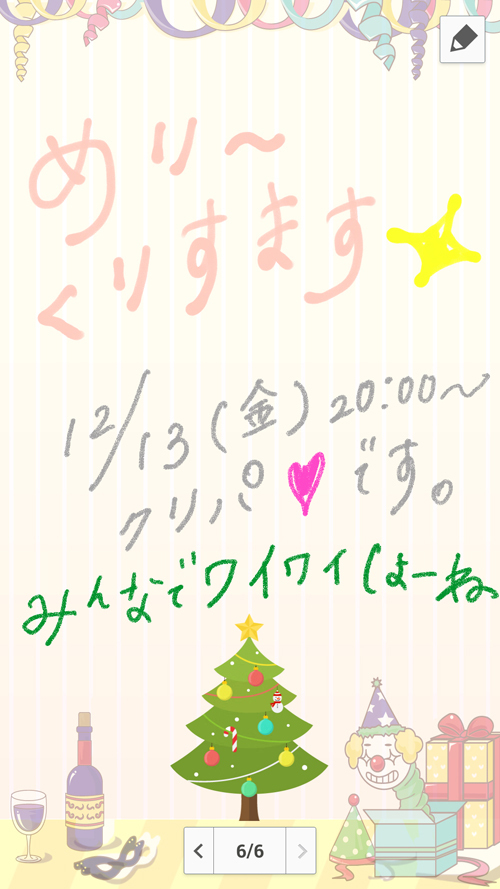 めり〜
くりすます
12/13(金)20:00〜
クリパ♥です。
みんなでワイワイしよーね
6/6